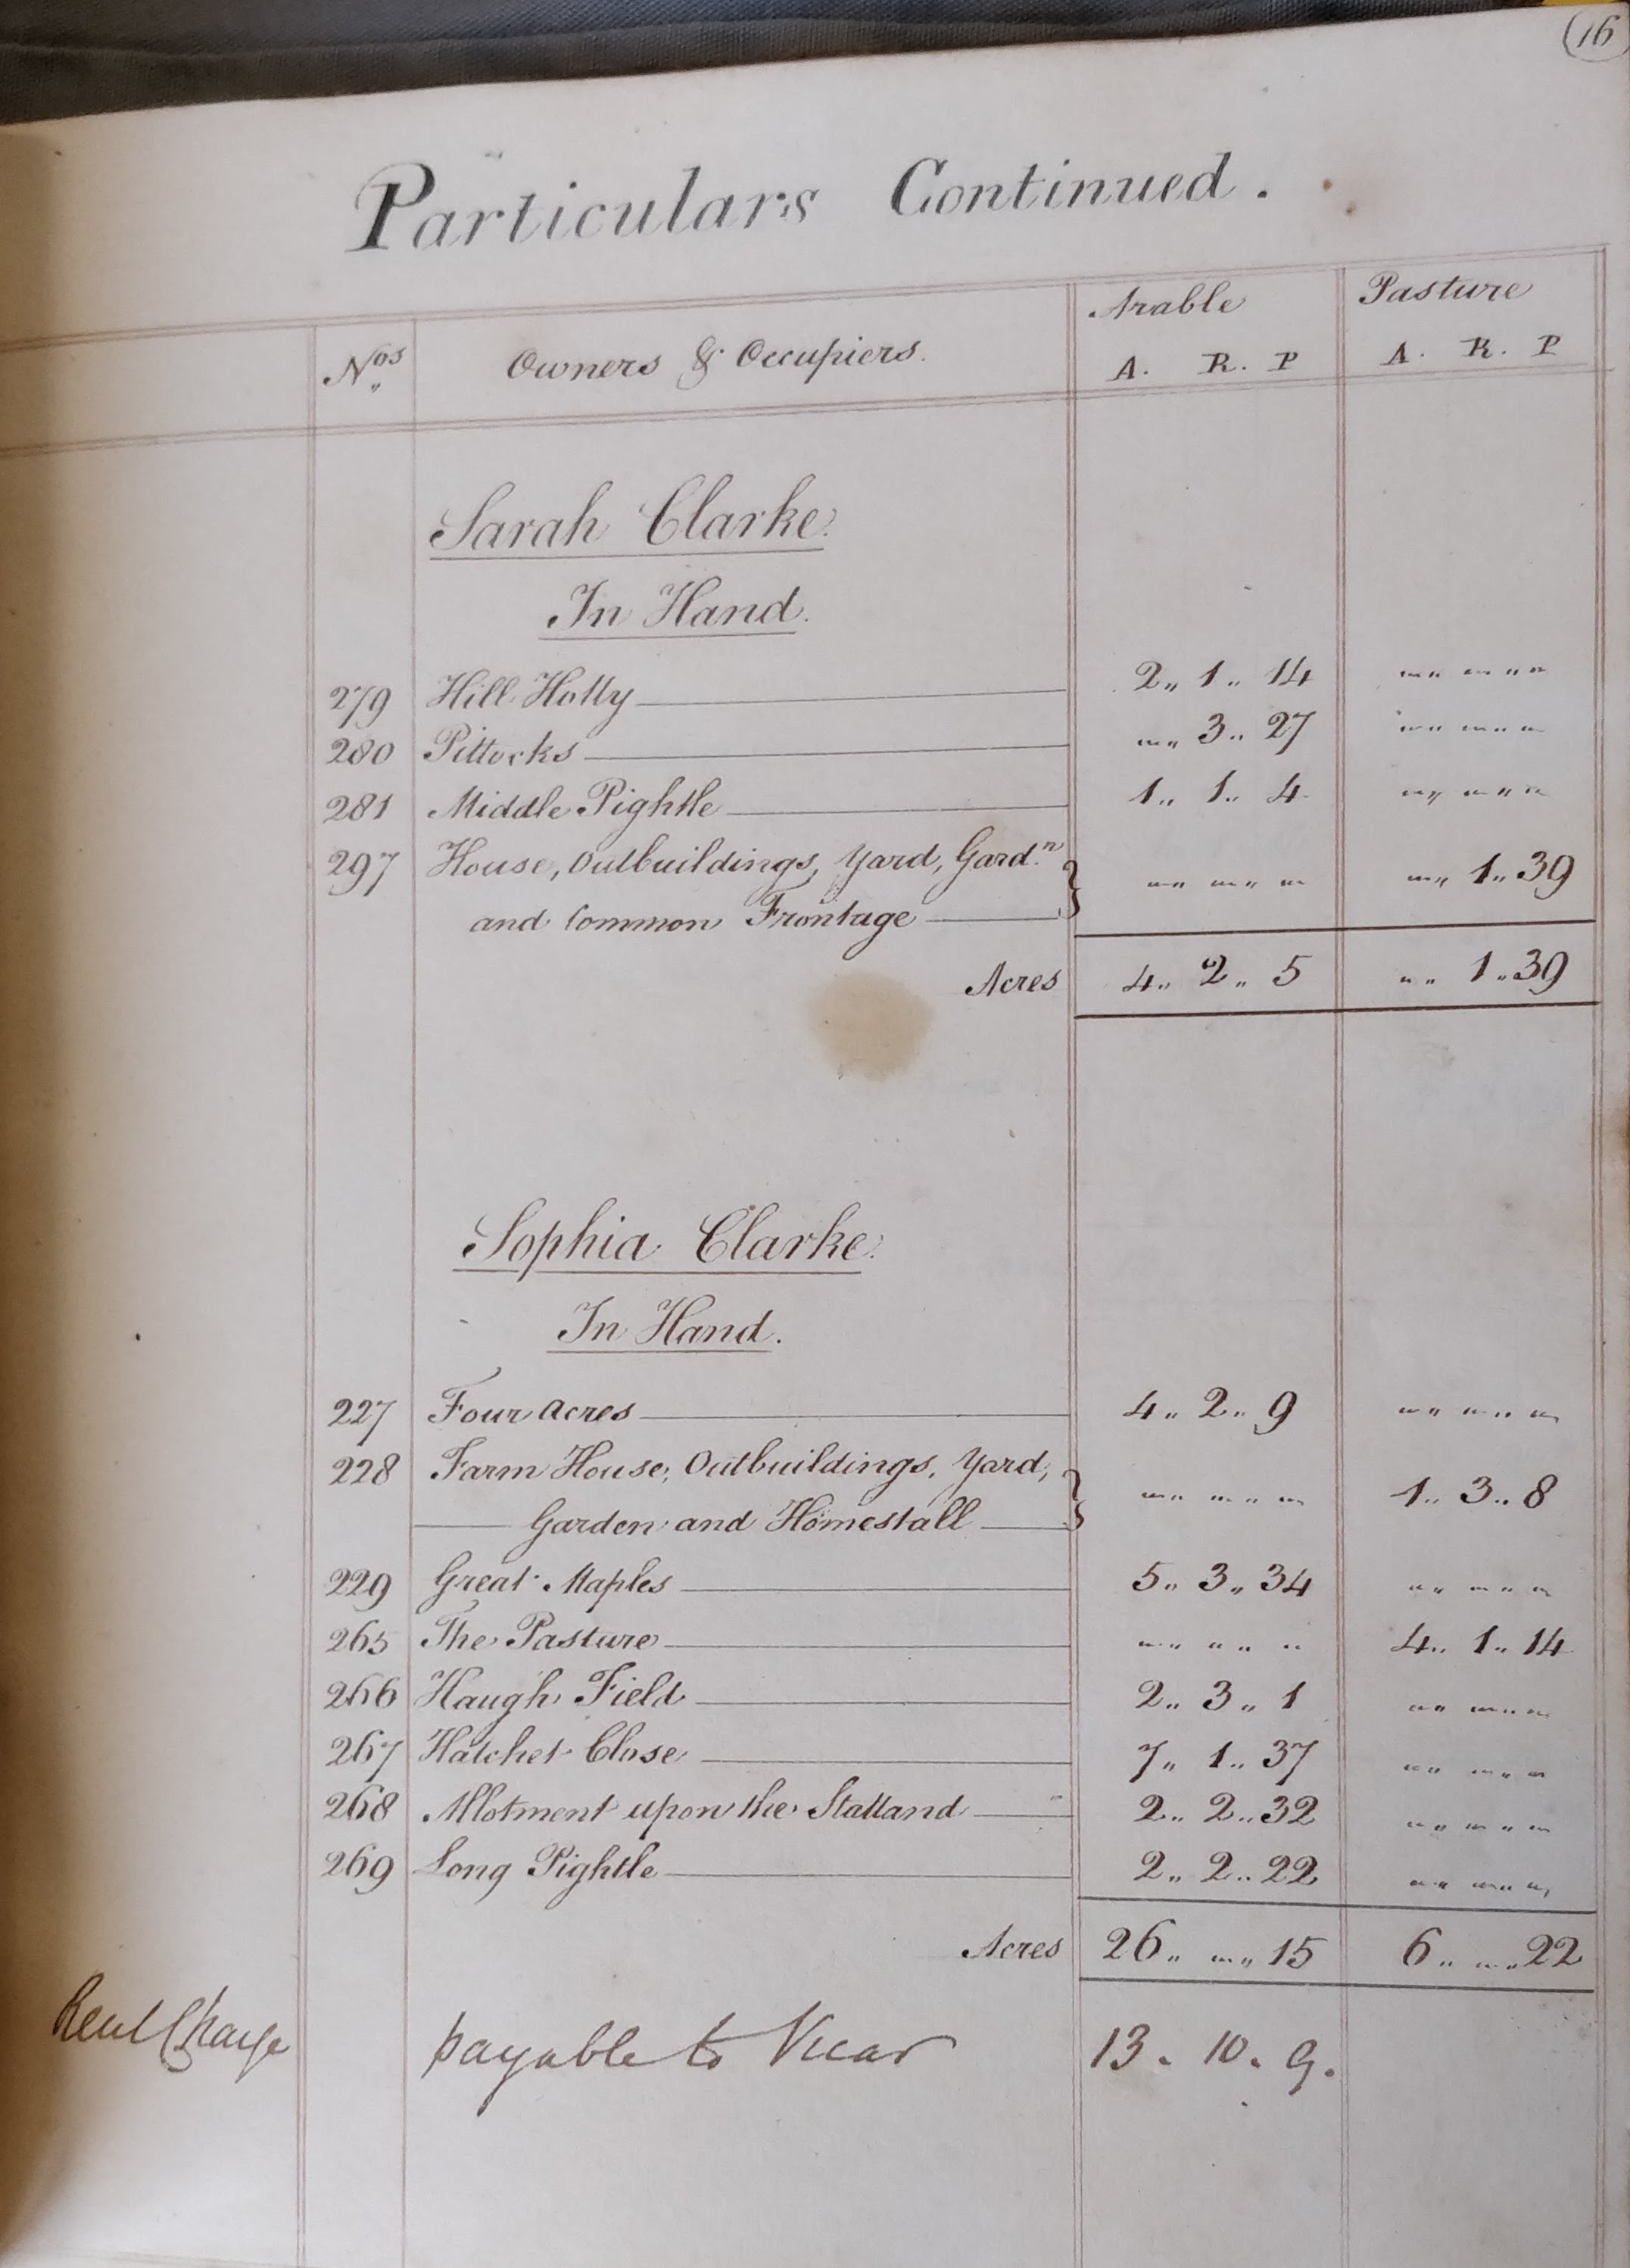 (16)
Particulars Continued.
Arable Pasture
Nos Owners & Occupiers. A. R. P A. R. P
Sarah Clarke.
In Hand.
279 Hill Holly 2,, 1,, 14 ,, ,, ,,
280 Pittocks ,, 3,, 27 ,, ,, ,,
281 Middle Pightle 1,, 1,, 4 ,, ,, ,,
297 House, Outbuildings, Yard, Gard.n
and Common Frontage ,, ,, ,, ,, 1,, 39
Acres 4,, 2,, 5 ,, 1,, 39
Sophia Clarke.
In Hand.
227 Four Acres 4,, 2,, 9 ,, ,, ,,
228 Farm House, Outbuildings, Yard,
Garden and Homestall ,, ,, ,, 1,, 3,, 8
229 Great Maples 5,, 3,, 34 ,, ,, ,,
265 The Pasture ,, ,, ,, 4,, 1,, 14
266 Haugh Field 2,, 3,, 1 ,, ,, ,,
267 Hatchet Close 7,, 1,, 37 ,, ,, ,,
268 Allotment upon the Statland 2,, 2,, 32 ,, ,, ,,
269 Long Pightle 2,, 2,, 22 ,, ,, ,,
Acres 26,, ,, 15 6,, ,, 22
Rent Charge payable to Vicar 13. 10. 9.